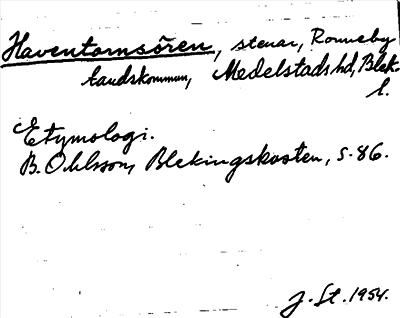 Haventomsören, stenar, Ronneby
landskommun, Medelstads hd, Blek.
l.
Etymologi.
B. Ohlsson, Blekingskusten, s. 86.
J. St. 1954.